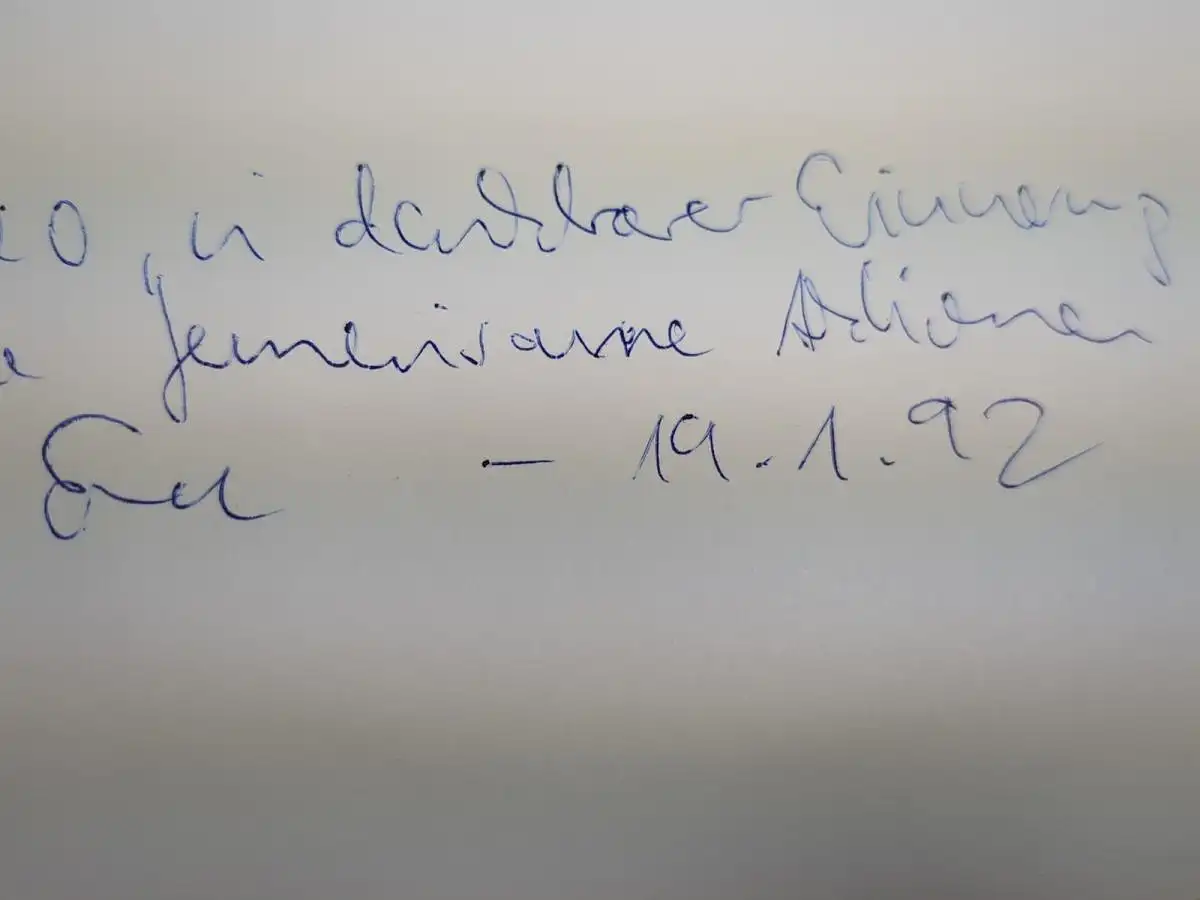 in dankbarer Erinnerung
gemeinsame Aktionen
- 19.1.92